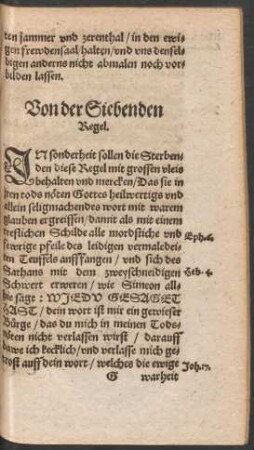 ten jammer vnd zerenthal / in den ewi-
gen frewdensaal / halten / vnd vns densel-
bigen anderns nicht abmalen noch vor-
bilden lassen.
Von der Siebenden
Regel.
IN sonderheit sollen die Sterben-
den diese Regel mit grossen vleis
behalten vnd mercken / Das sie in
jren tods nöten Gottes heilwertigs vnd
allein seligmachendes wort mit warem
glauben ergreiffen / damit als mit einem
trefflichen Schilde alle mordtliche vnd
fewrige pfeile des leidigen vermaledei-
ten Teuffels aufffangen / vnd sich des
Sathans mit dem zweyschneidigen
Schwert erweren / wie Simeon all-
hie sagt: WIE DV GESAGET
HAST / dein wort ist mir ein gewisser
Bürge / das du mich in meinen Tods-
nöten nicht verlassen wirst / darauff
bawe ich kecklich / vnd verlasse mich ge-
trost auff dein wort / welches die ewige
G warheit
Eph. 6.
Heb. 4.
Joh. 17.